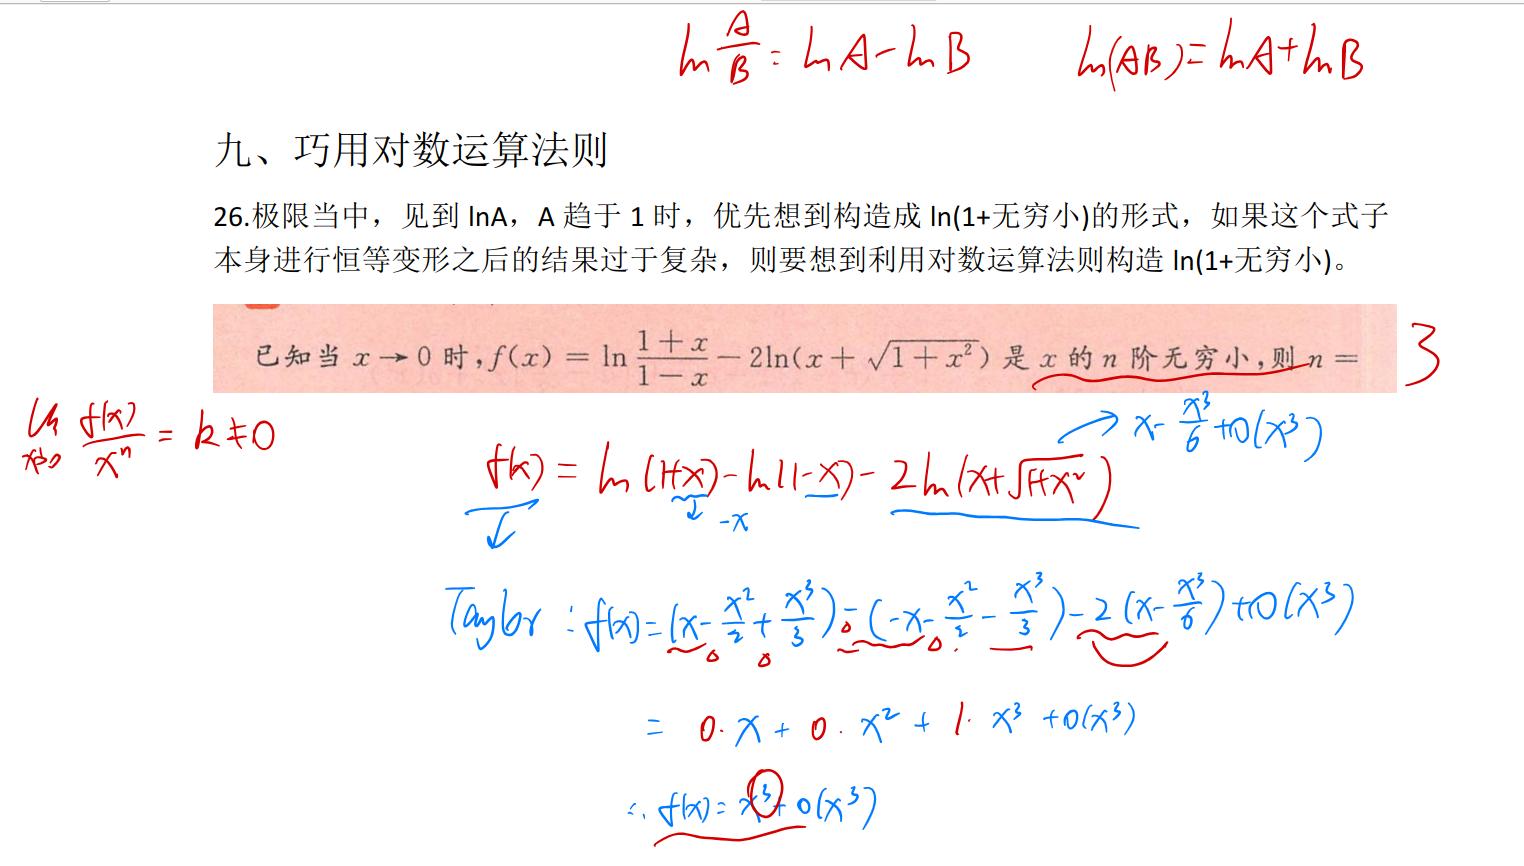 ln A/B = lnA - lnB  ln(AB) = lnA + lnB
九、巧用对数运算法则
26.极限当中，见到 lnA，A 趋于 1 时，优先想到构造成 ln(1+无穷小)的形式，如果这个式子
本身进行恒等变形之后的结果过于复杂，则要想到利用对数运算法则构造 ln(1+无穷小)。
已知当 x → 0 时,f(x) = ln (1+x)/(1-x) - 2ln(x + √(1+x²)) 是 x 的 n 阶无穷小,则 n = 3
lim x→0 f(x)/xⁿ = k ≠ 0
x - x³/6 + o(x³)
f(x) = ln(1+x) - ln(1-x) - 2ln(x+√(1+x²))
-x
Taylor : f(x) = (x - x²/2 + x³/3) - (-x - x²/2 - x³/3) - 2(x - x³/6) + o(x³)
= 0·x + 0·x² + 1·x³ + o(x³)
∴ f(x) = x³ + o(x³)